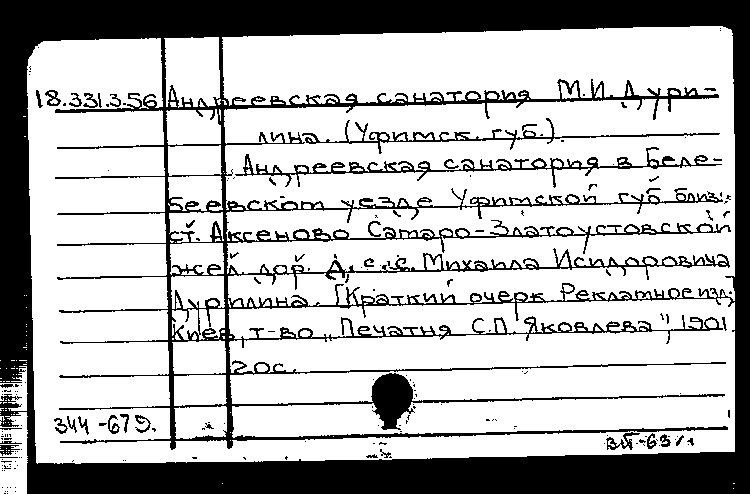 18.331.3.56 Андреевская санатория М.И. Дури-
лина. (Уфимск. губ.).
Андреевская санатория в Беле-
беевском уезде Уфимской губ близ.
ст. Аксеново Самаро-Златоустовской
жел. дор. Д.с.с. Михаила Исидоровича
Дурилина. [Краткий очерк Рекламное изд.]
Киев, т-во „Печатня С.П. Яковлева", 1901.
20с.
344-679.